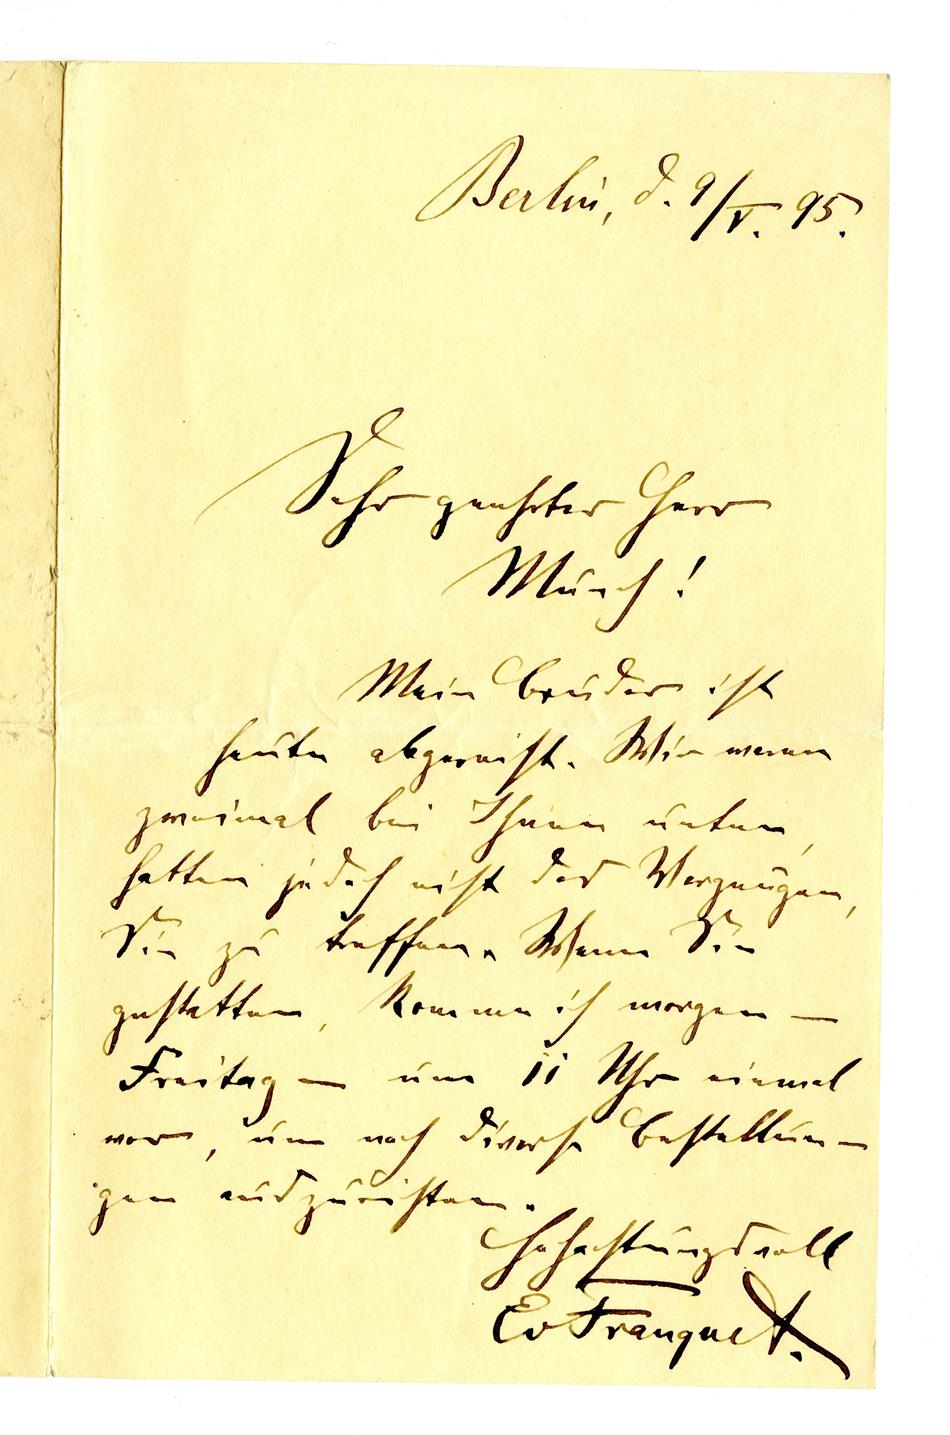 Berlin, d. 9/V. 95.
Sehr geehrter Herr
Munch!
Mein Bruder ist
heute abgereist. Wir waren
zweimal bei Ihnen unten,
hatten jedoch nicht das Vergnügen,
Sie zu treffen. Wenn Sie
gestatten, komme ich morgen —
Freitag — um 11 Uhr einmal
vor, um noch diverse Bestellun-
gen auszurichten.
Hochachtungsvoll
Ev Franquet.